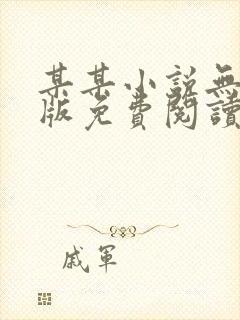 某某小说無
版免費閱讀
戚軍